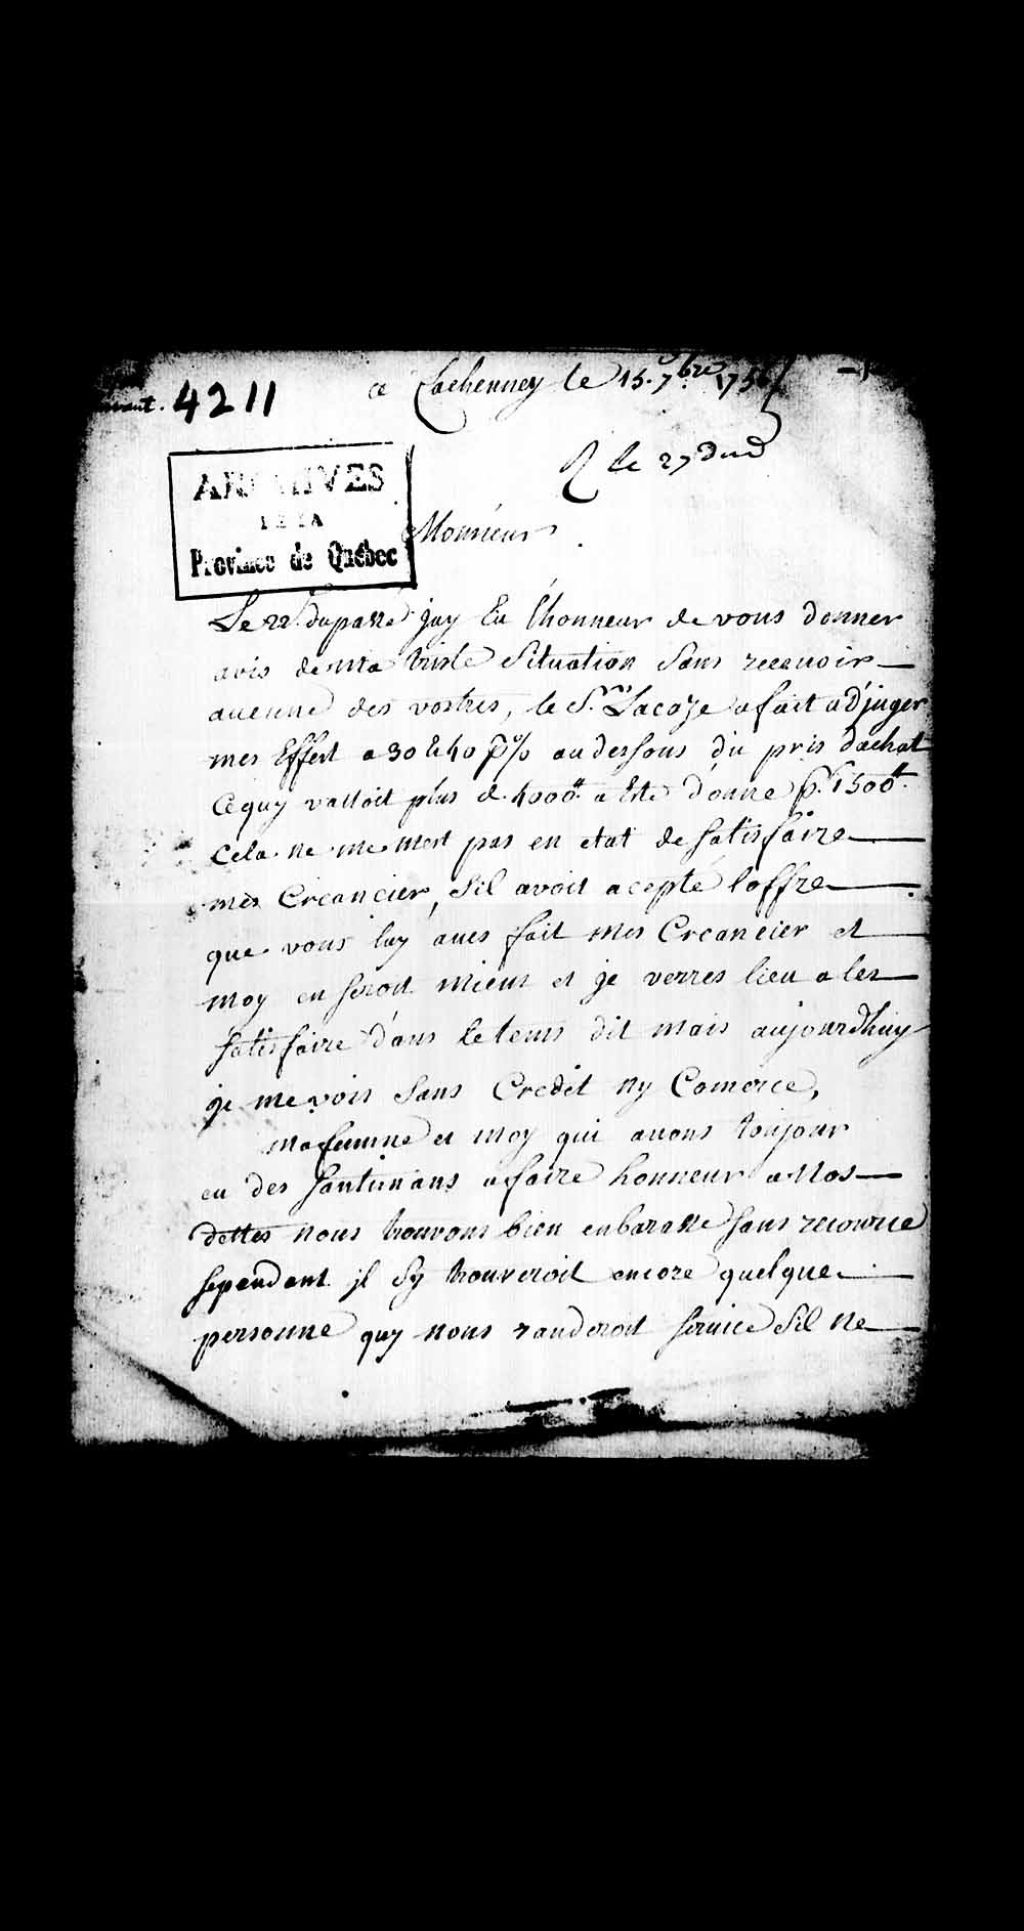 4211
a Lachenney le 15. 7bre 175
R le 27 dud
ARCHIVES
DE LA
Province de Québec
Monsieur
Le 22. dupasse jay Eu l'honneur de vous donner
avis de ma triste Situation Sans receuoir
aucunne des vostres, le Sr. Lacoze a fait ad'juger
mes Effert a 30 & 40 p% au dessous du pris dachat
Ce quy valloit plus de 4000# a Esté donne pr. 1500#.
Cela ne me mest pas en etat de Satisfaire
mes Creancier, Sil avoit acepté loffre
que vous luy aues fait mes Creancier et
moy en seroit mieux et je verres lieu a les
Satisfaire dans le tems dit mais aujourdhuy
je me vois Sans Credit ny Comerce,
ma femme et moy qui auons toujour
eu des Santimans a faire honneur a Nos
dettes nous trouvons bien enbarasse sans recource
sependant jl Sy trouveroit encore quelque
personne quy nous randeroit seruice Sil ne